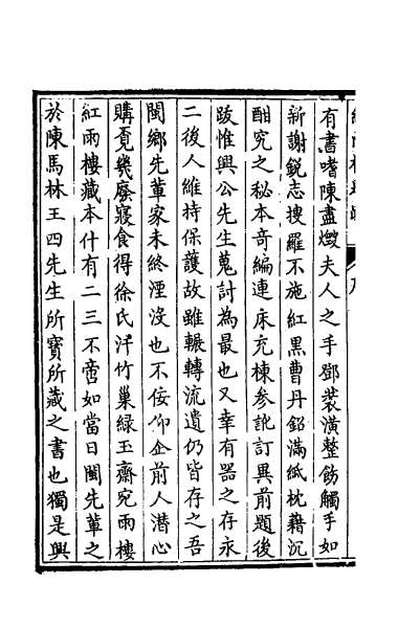 有書嗜陳盡燬夫人之手鄧裝潢整飭觸手如
新謝銳志搜羅不施紅黑曹丹鉛滿紙枕藉沉
酣究之秘本奇編連床充棟參訛訂異前題後
跋惟興公先生蒐討為最也又幸有器之存永
二後人維持保護故雖輾轉流遺仍皆存之吾
閩鄉先輩家未終湮沒也不佞仰企前人潛心
購覓幾廢寢食得徐氏汗竹巢綠玉齋宛雨樓
紅雨樓藏本什有二三不啻如當日閩先輩之
於陳馬林王四先生所寶所藏之書也獨是興